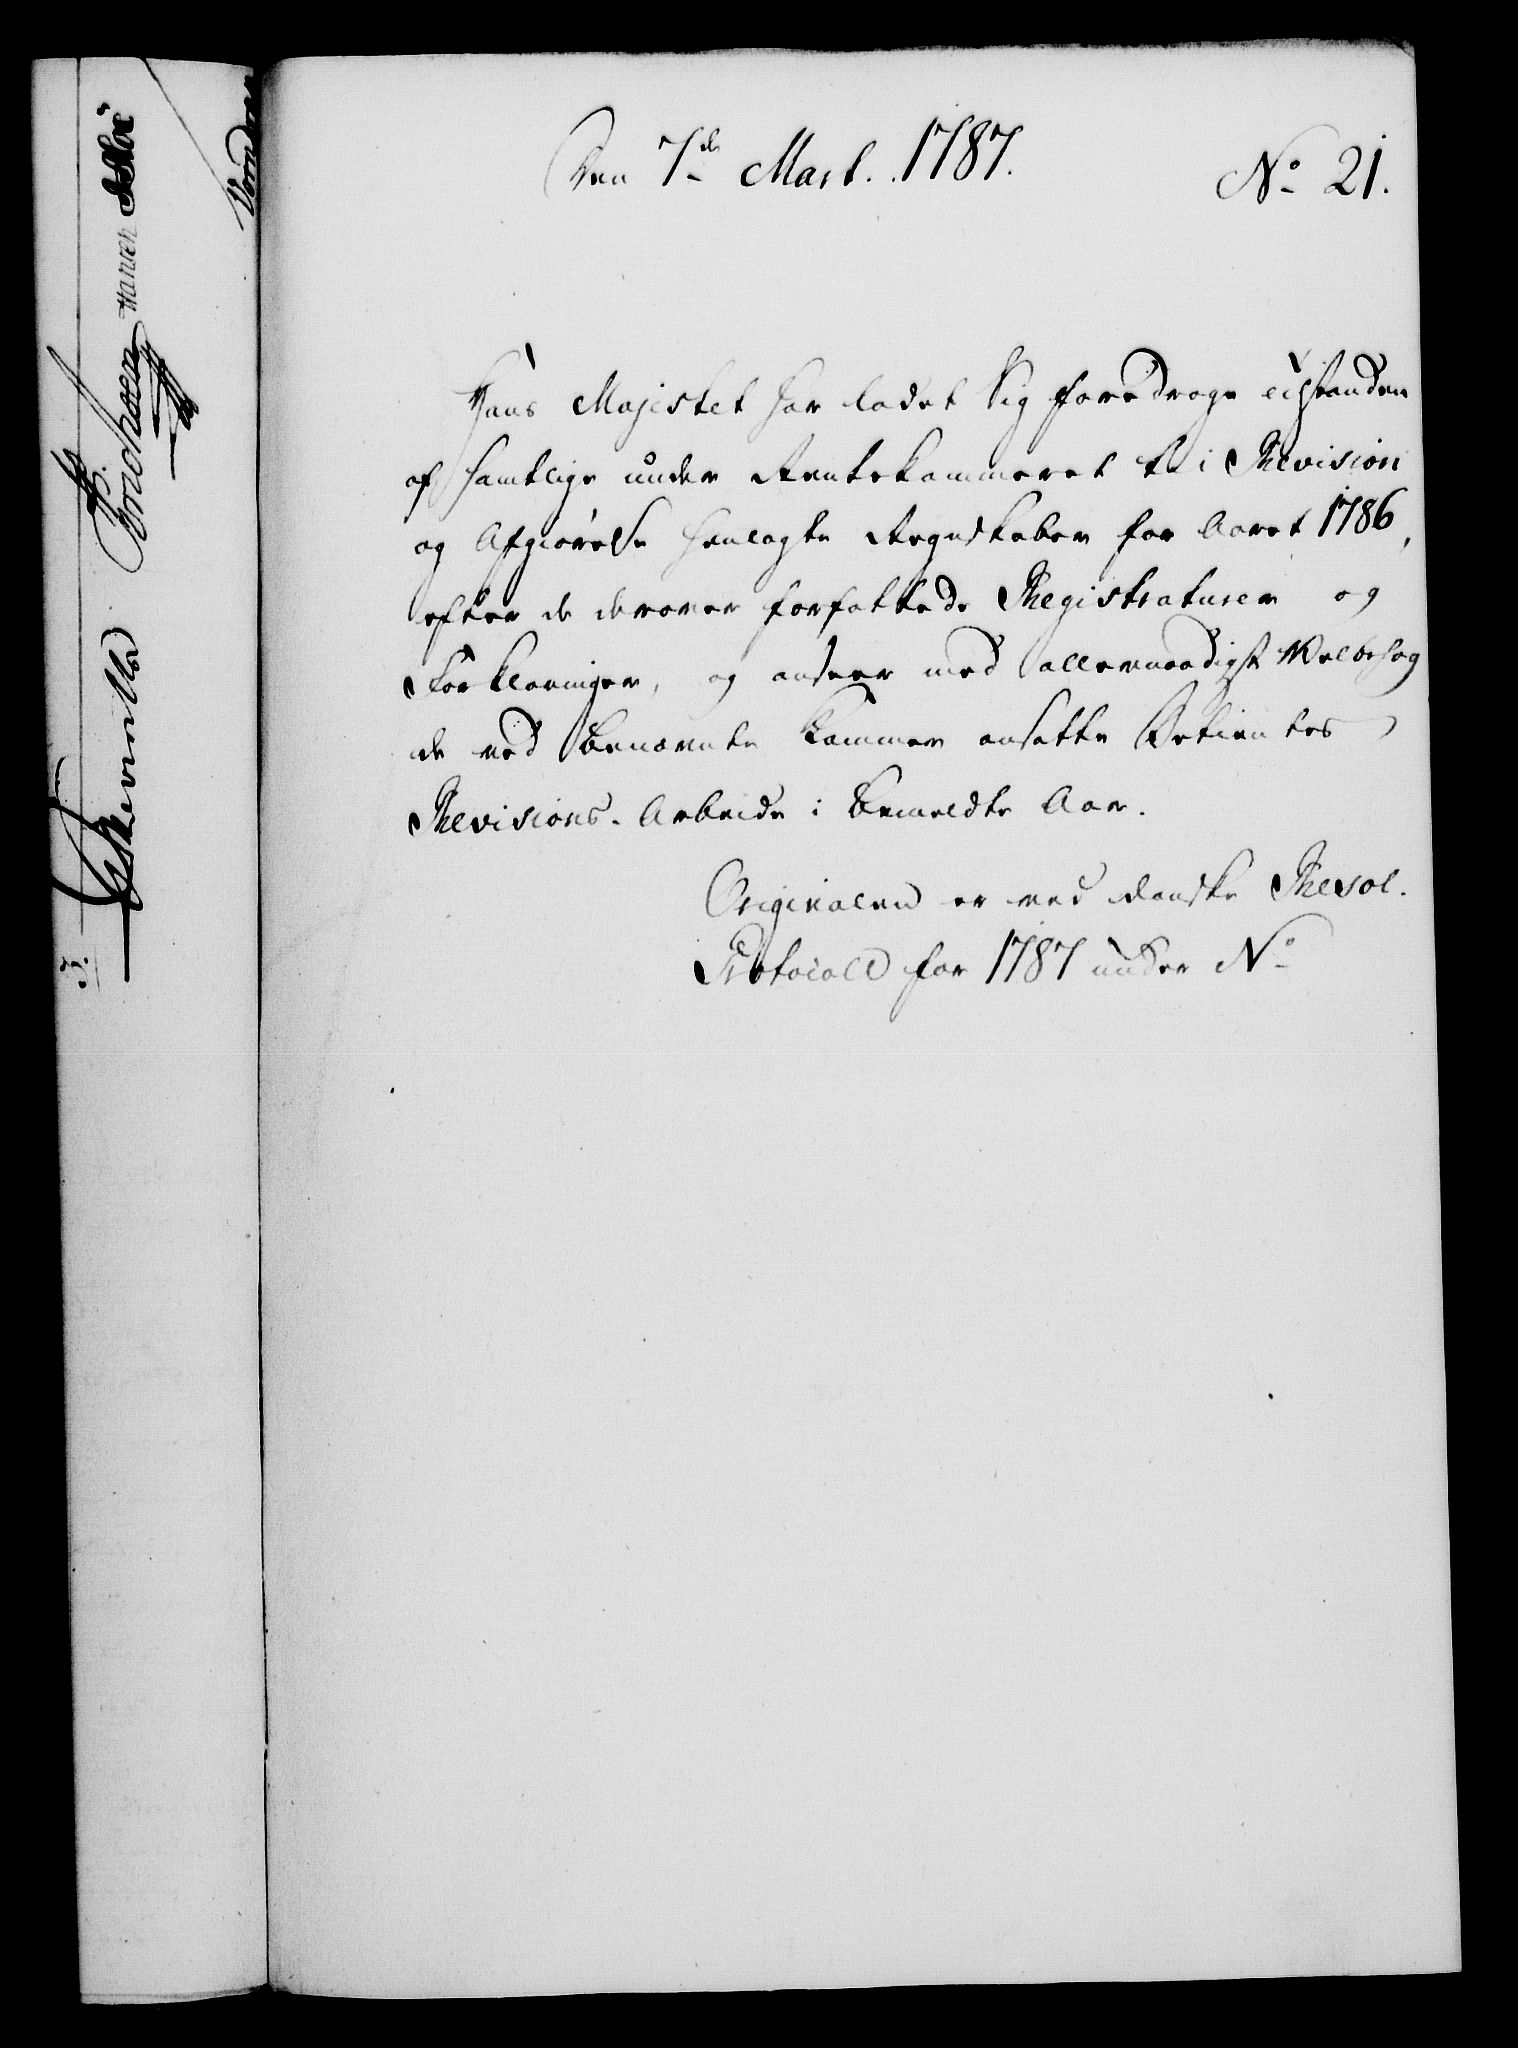 Den 7de Mart. 1787.
No 21.
Hans Majestet har ladet Sig foredrage Tilstanden
af samtlige under Rentekammeret til Revision
og Afgiørelse henlagte Regnskaber for Aaret 1786,
efter de derover forfattede Registraturer og
Forklaringer, og anseer med allernaadigst Velbehag
de ved benævnte Kammer ansatte Betientes
Revisions-Arbeide i bemeldte Aar.
Originalen er ved danske Resol.
Protocoll for 1787 under No